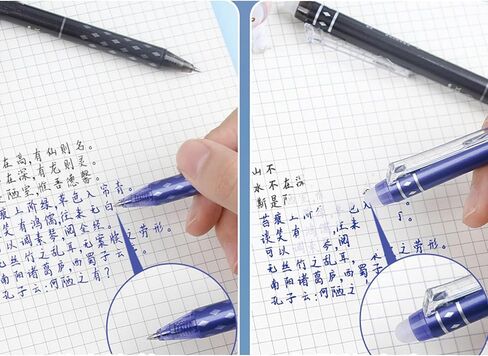 在高,有仙则名。
在深,有龙则灵。
是陋室,惟吾德馨
痕上阶绿草色入帘青。
笑有鸿儒,往来无白
可以调素琴,阅金经。
无丝竹之乱耳,无案牍之劳形。
南阳诸葛庐,西蜀子云
孔子云:何陋之有?
山不
水不在深
斯是
苔痕上阶 色入
谈笑有 往来
可以 琴阅
无丝竹之乱耳, 之劳形。
南阳诸葛庐,西蜀子
孔子云:何陋之